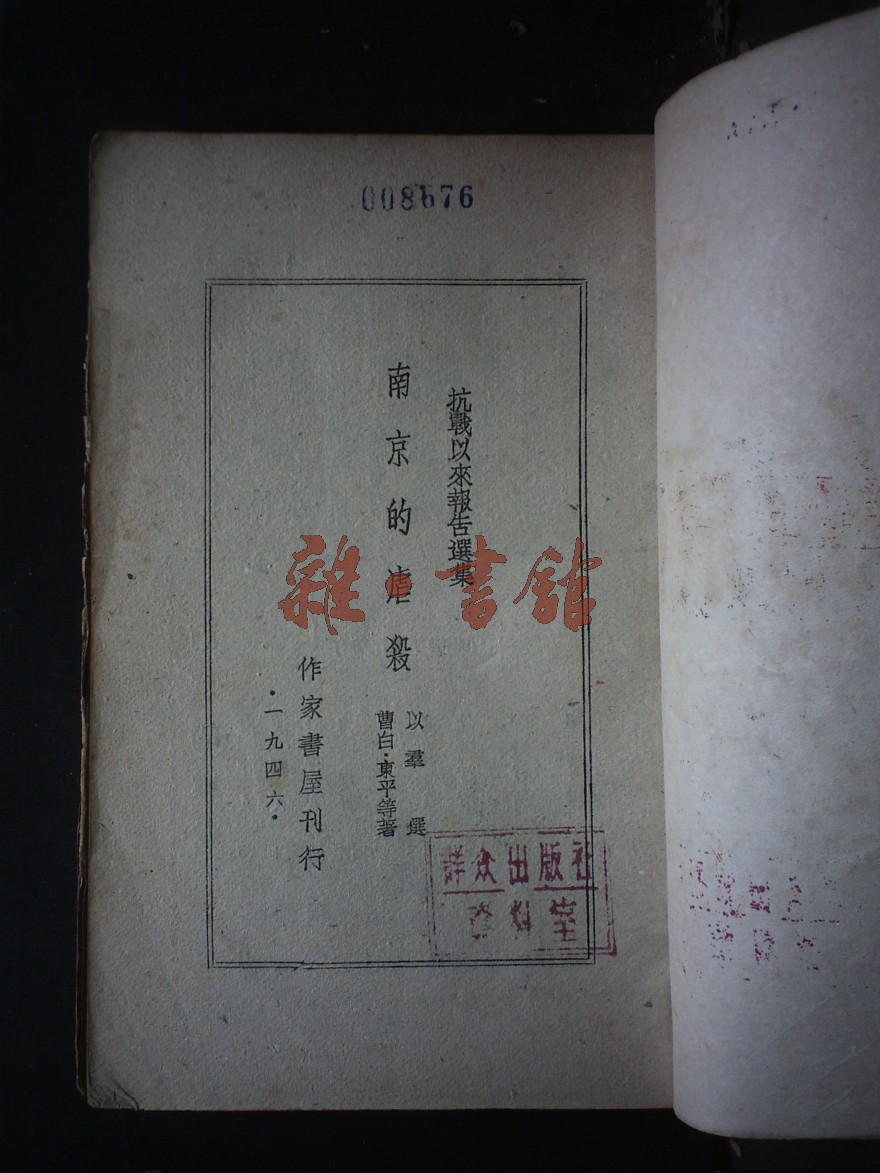 008676
抗戰以來報告選集
南京的虐殺
以羣 選
曹白·東平等著
作家書屋刊行
·一九四六·
雜·書館
群众出版社
资料室